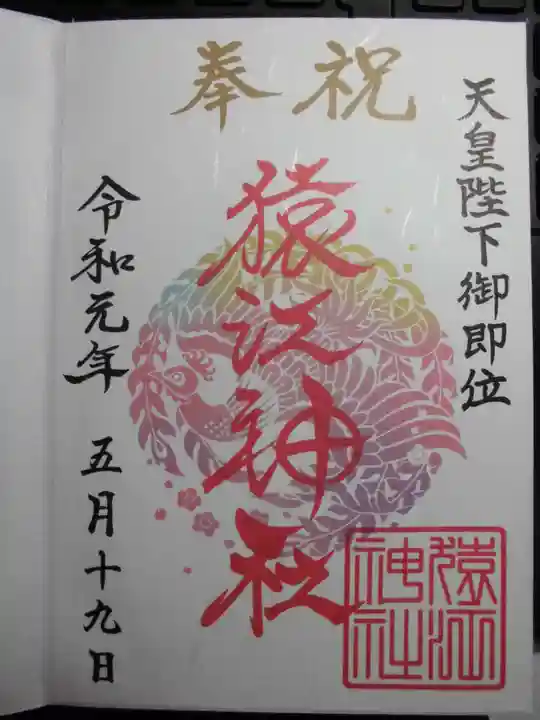 奉祝
天皇陛下御即位
猿江神社
令和元年 五月十九日
猿江神社